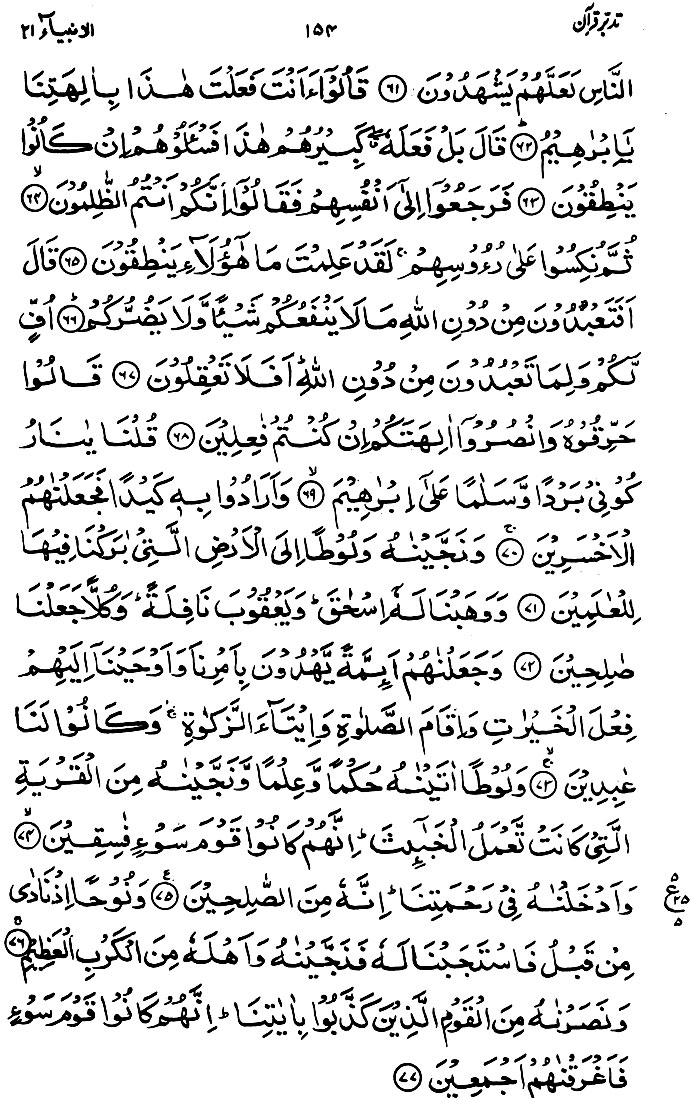 تدبر قرآن ۱۵۴ الانبیاء ۲۱
النَّاسِ لَعَلَّهُمْ يَشْهَدُوْنَ ﴿۶۱﴾ قَالُوْٓا ءَاَنْتَ فَعَلْتَ هٰذَا بِاٰلِهَتِنَا
يٰٓاِبْرٰهِيْمُ ﴿۶۲﴾ؕ قَالَ بَلْ فَعَلَهٗ ۖ كَبِيْرُهُمْ هٰذَا فَسْـَٔلُوْهُمْ اِنْ كَانُوْا
يَنْطِقُوْنَ ﴿۶۳﴾ فَرَجَعُوْٓا اِلٰٓى اَنْفُسِهِمْ فَقَالُوْٓا اِنَّكُمْ اَنْتُمُ الظّٰلِمُوْنَ ﴿۶۴﴾ۙ
ثُمَّ نُكِسُوْا عَلٰى رُءُوْسِهِمْ ۚ لَقَدْ عَلِمْتَ مَا هٰٓؤُلَآءِ يَنْطِقُوْنَ ﴿۶۵﴾ قَالَ
اَفَتَعْبُدُوْنَ مِنْ دُوْنِ اللّٰهِ مَا لَا يَنْفَعُكُمْ شَيْـًٔا وَّلَا يَضُرُّكُمْ ﴿۶۶﴾ؕ اُفٍّ
لَّكُمْ وَلِمَا تَعْبُدُوْنَ مِنْ دُوْنِ اللّٰهِ ؕ اَفَلَا تَعْقِلُوْنَ ﴿۶۷﴾ قَالُوْا
حَرِّقُوْهُ وَانْصُرُوْٓا اٰلِهَتَكُمْ اِنْ كُنْتُمْ فٰعِلِيْنَ ﴿۶۸﴾ قُلْنَا يٰنَارُ
كُوْنِيْ بَرْدًا وَّسَلٰمًا عَلٰٓى اِبْرٰهِيْمَ ﴿۶۹﴾ۙ وَاَرَادُوْا بِهٖ كَيْدًا فَجَعَلْنٰهُمُ
الْاَخْسَرِيْنَ ﴿۷۰﴾ۚ وَنَجَّيْنٰهُ وَلُوْطًا اِلَى الْاَرْضِ الَّتِيْ بٰرَكْنَا فِيْهَا
لِلْعٰلَمِيْنَ ﴿۷۱﴾ وَوَهَبْنَا لَهٗٓ اِسْحٰقَ ؕ وَيَعْقُوْبَ نَافِلَةً ؕ وَكُلًّا جَعَلْنَا
صٰلِحِيْنَ ﴿۷۲﴾ وَجَعَلْنٰهُمْ اَىِٕمَّةً يَّهْدُوْنَ بِاَمْرِنَا وَاَوْحَيْنَآ اِلَيْهِمْ
فِعْلَ الْخَيْرٰتِ وَاِقَامَ الصَّلٰوةِ وَاِيْتَآءَ الزَّكٰوةِ ۚ وَكَانُوْا لَنَا
عٰبِدِيْنَ ﴿۷۳﴾ۚۙ وَلُوْطًا اٰتَيْنٰهُ حُكْمًا وَّعِلْمًا وَّنَجَّيْنٰهُ مِنَ الْقَرْيَةِ
الَّتِيْ كَانَتْ تَّعْمَلُ الْخَبٰٓىِٕثَ ؕ اِنَّهُمْ كَانُوْا قَوْمَ سَوْءٍ فٰسِقِيْنَ ﴿۷۴﴾ۙ
وَاَدْخَلْنٰهُ فِيْ رَحْمَتِنَا ؕ اِنَّهٗ مِنَ الصّٰلِحِيْنَ ﴿۷۵﴾ۧ وَنُوْحًا اِذْ نَادٰى
۵ ع ۲۵ ۵
مِنْ قَبْلُ فَاسْتَجَبْنَا لَهٗ فَنَجَّيْنٰهُ وَاَهْلَهٗ مِنَ الْكَرْبِ الْعَظِيْمِ ﴿۷۶﴾ۚ
وَنَصَرْنٰهُ مِنَ الْقَوْمِ الَّذِيْنَ كَذَّبُوْا بِاٰيٰتِنَا ؕ اِنَّهُمْ كَانُوْا قَوْمَ سَوْءٍ
فَاَغْرَقْنٰهُمْ اَجْمَعِيْنَ ﴿۷۷﴾